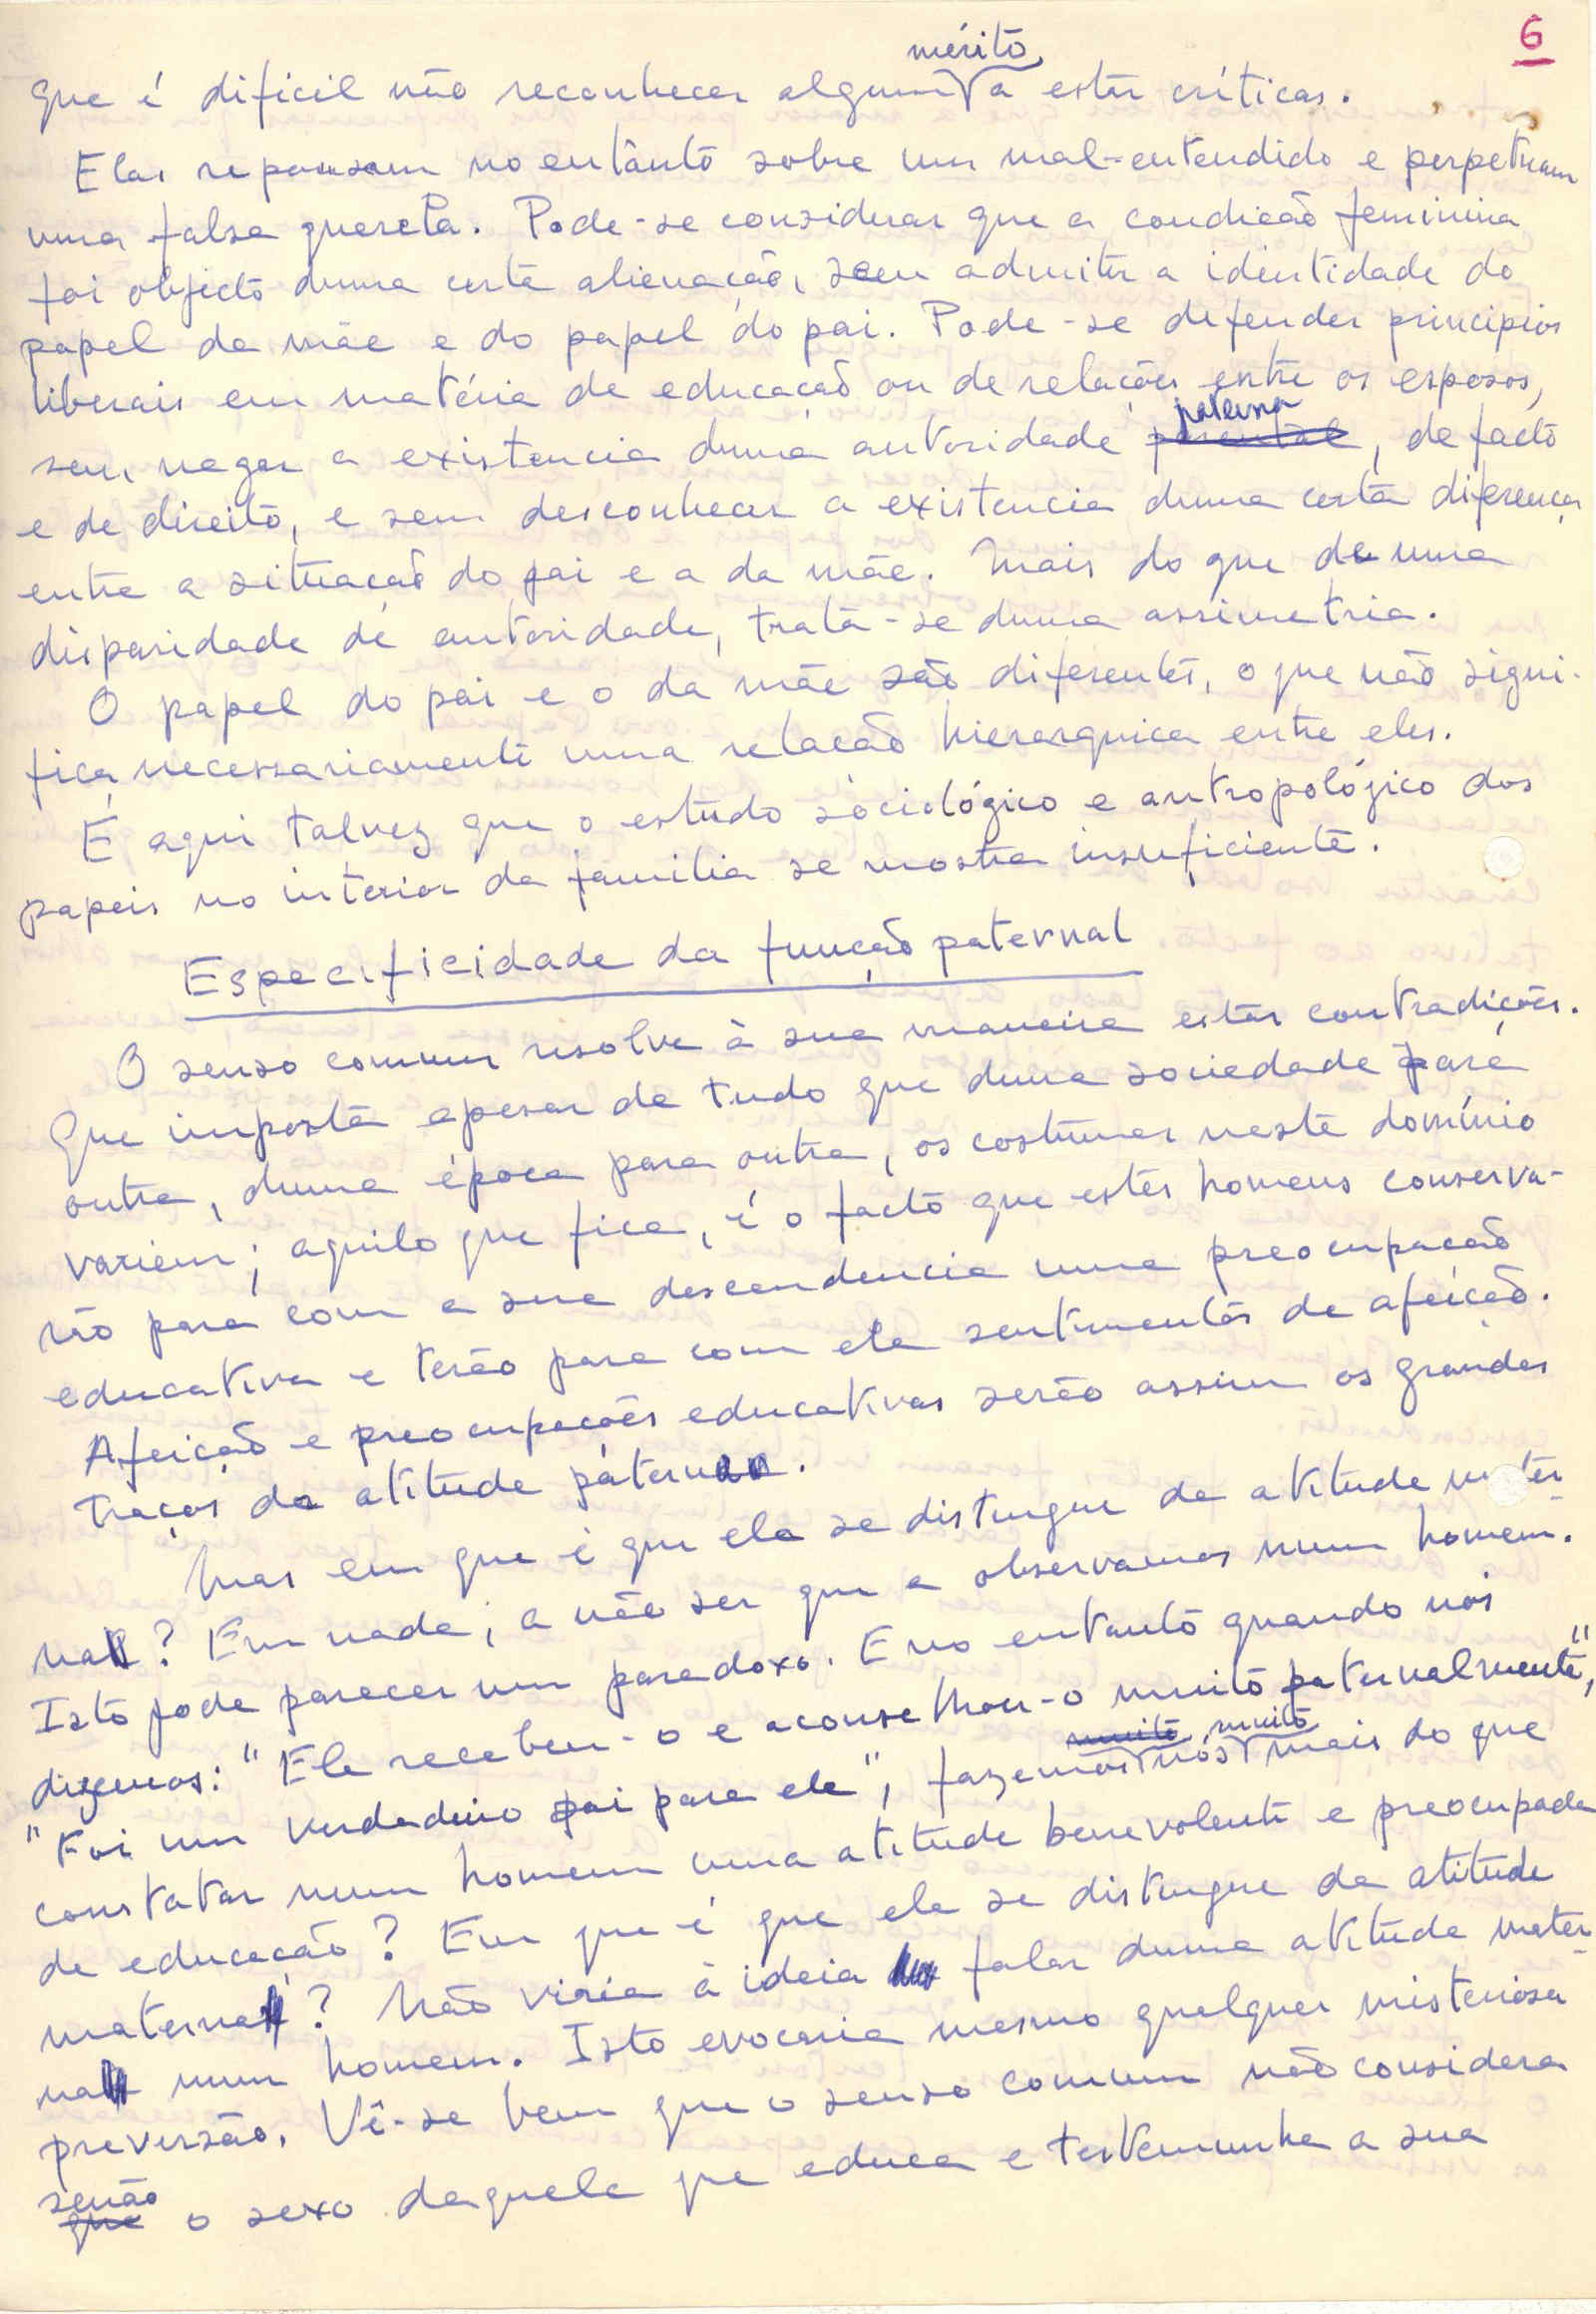 6
mérito
que é dificil não reconhecer algum a estas críticas.
Elas repousam no entânto sobre um mal-entendido e perpetuam
uma falsa querela. Pode-se considerar que a condição feminina
foi objecto duma certa alienação, sem admitir a identidade do
papel da mãe e do papel do pai. Pode-se defender principios
liberais em matéria de educação ou de relações entre os esposos,
paterna
sem negar a existencia duma autoridade parental, de facto
e de direito, e sem desconhecer a existencia duma certa diferença
entre a situação do pai e a da mãe. Mais do que de uma
disparidade de autoridade, trata-se duma assimetria.
O papel do pai e o da mãe são diferentes, o que não signi-
fica necessariamente uma relação hierarquica entre eles.
É aqui talvez que o estudo sociológico e antropológico dos
papeis no interior da familia se mostra insuficiente.
Especificidade da função paternal
O senso comum resolve à sua maneira estas contradições.
Que importa apesar de tudo que duma sociedade para
outra, duma época para outra, os costumes neste domínio
variem; aquilo que fica, é o facto que estes homens conserva-
rão para com a sua descendencia uma preocupação
educativa e terão para com ela sentimentos de afeição.
Afeição e preocupações educativas serão assim os grandes
traços da atitude paterna.
Mas em que é que ela se distingue da atitude mater-
na? Em nada, a não ser que a observamos num homem.
Isto pode parecer um paradoxo. E no entanto quando nós
dizemos: "Ele recebeu-o e aconselhou-o muito paternalmente",
muito muito
"Foi um verdadeiro pai para ele", fazemos nós mais do que
constatar num homem uma atitude benevolente e preocupada
de educação? Em que é que ela se distingue da atitude
materna? Não viria à ideia falar duma atitude mater-
na num homem. Isto evocaria mesmo qualquer misteriosa
preversão. Vê-se bem que o senso comum não considera
senão
que o sexo daquele que educa e testemunha a sua